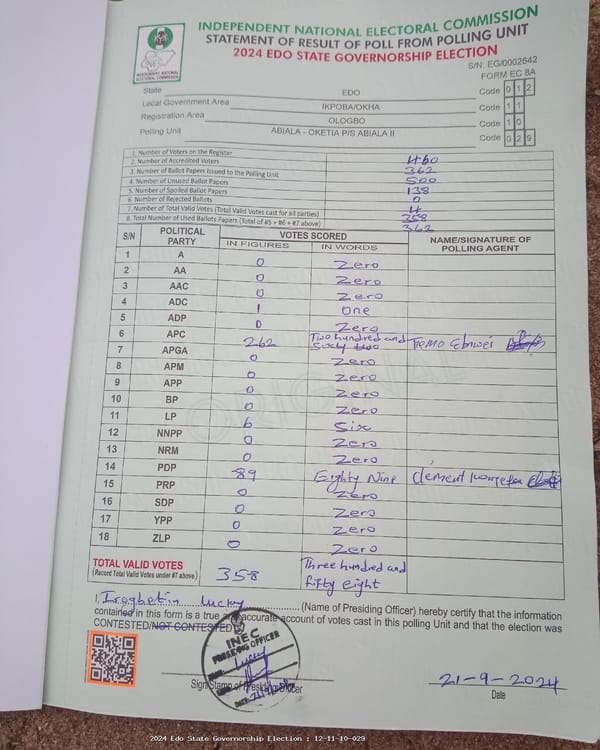 INDEPENDENT NATIONAL ELECTORAL COMMISSION
STATEMENT OF RESULT OF POLL FROM POLLING UNIT
2024 EDO STATE GOVERNORSHIP ELECTION
S/N: EG/0002642
FORM EC 8A
INEC
INDEPENDENT NATIONAL ELECTORAL COMMISSION
State EDO Code 012
Local Government Area IKPOBA/OKHA Code 11
Registration Area OLOGBO Code 10
Polling Unit ABIALA - OKETIA P/S ABIALA II Code 029
1. Number of Voters on the Register 460
2. Number of Accredited Voters 362
3. Number of Ballot Papers Issued to the Polling Unit 500
4. Number of Unused Ballot Papers 138
5. Number of Spoiled Ballot Papers 0
6. Number of Rejected Ballots 4
7. Number of Total Valid Votes (Total Valid Votes cast for all parties) 358
8. Total Number of Used Ballots Papers (Total of #5 + #6 + #7 above) 362
S/N POLITICAL PARTY VOTES SCORED NAME/SIGNATURE OF POLLING AGENT
IN FIGURES IN WORDS
1 A 0 Zero
2 AA 0 Zero
3 AAC 0 Zero
4 ADC 1 one
5 ADP 0 Zero
6 APC 262 Two hundred and Sixty two
7 APGA 0 Zero
8 APM 0 Zero
9 APP 0 Zero
10 BP 0 Zero
11 LP 6 Six
12 NNPP 0 Zero
13 NRM 0 Zero
14 PDP 89 Eighty Nine Clement
15 PRP 0 Zero
16 SDP 0 Zero
17 YPP 0 Zero
18 ZLP 0 Zero
TOTAL VALID VOTES 358 Three hundred and
(Record Total Valid Votes under #7 above) fifty eight
I, Iroghetin Lucky (Name of Presiding Officer) hereby certify that the information
contained in this form is a true and accurate account of votes cast in this polling Unit and that the election was
CONTESTED/NOT CONTESTED
INEC
PRESIDING OFFICER
Lucky
DATE:
Sign/Stamp of Presiding Officer
21-9-2024
Date
2024 Edo State Governorship Election : 12-11-10-029